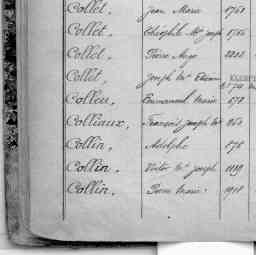 Collet, Jean Marie 1761
Collet, Théophile Mie Joseph 1756
Collet, Pierre Ange
Collet, Joseph Mie Etienne
Colleu, Emmanuel Marie 678
Colliaux, François Joseph Mie 960
Collin, Adolphe
Collin, Victor Mie Joseph 1189
Collin, Pierre Marie 1911